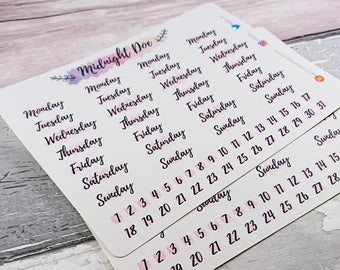 Midnight Doe
Monday Monday Monday Monday
Tuesday Tuesday Tuesday Tuesday
Wednesday Wednesday Wednesday Wednesday
Thursday Thursday Thursday Thursday
Friday Friday Friday Friday
Saturday Saturday Saturday Saturday
Sunday Sunday Sunday Sunday
1 2 3 4 5 6 7 8 9 10 11 12 13 14 15 16 17
18 19 20 21 22 23 24 25 26 27 28 29 30 31
Sunday Sunday
1 2 3 4 5 6 7 8 9 10 11 12 13 14 15
18 19 20 21 22 23 24 25 26 27 28 29